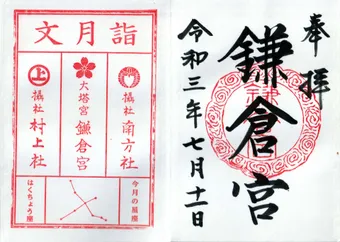 文月詣
攝社
南方社
大塔宮
鎌倉宮
上
攝社
村上社
今月の星座
はくちょう座
奉拝
鎌倉宮
令和三年七月十一日